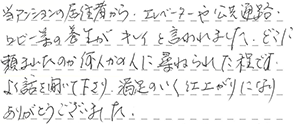 当マンションの居住者から、エレベーターや公共通路
ロビー等の養生が キレイと言われました。どこに
頼まれたのか何人かの人に尋ねられた程です。
よく話を聞いて下さり、満足のいく仕上がりになり
ありがとうございました。